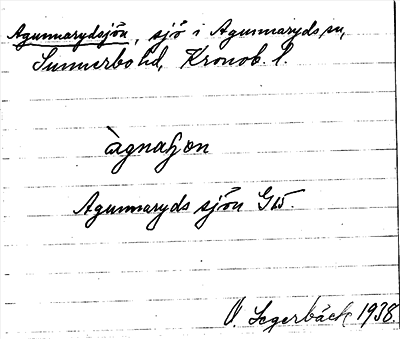 Agunnarydsjön, sjö i Agunnaryds sn,
Sunnerbo hd, Kronob. l.
àgnaɧon
Agunnaryds sjön G15.
V. Segerbäck 1938.